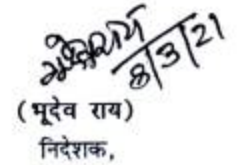 8/3/21
(भूदेव राय)
निदेशक,